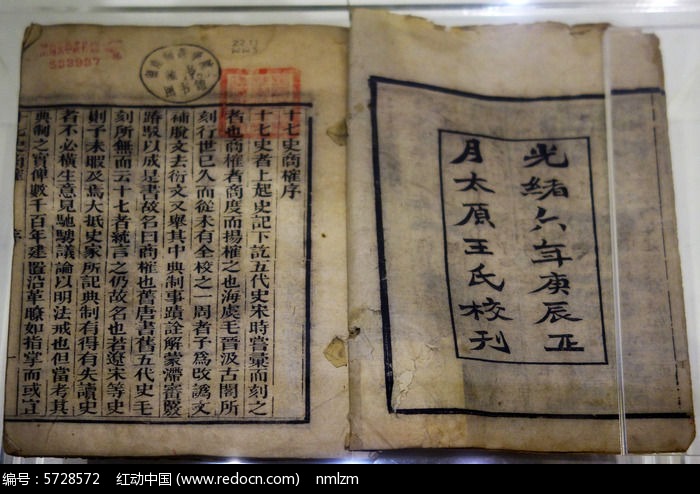 光緒六年庚辰正
月太原王氏校刊
十七史商榷序
十七史者上起史記下訖五代史宋時嘗彙而刻之
者也商榷者商度而揚榷之也海虞毛晉汲古閣所
刻行世已久而從未有全校之一周者予為改譌文
補脫文去衍文又舉其中典制事蹟詮解蒙滯審覈
踳駁以成是書故名曰商榷也舊唐書舊五代史毛
刻所無而云十七者統言之仍故名也若遼宋等史
則予未暇及焉大抵史家所記典制有得有失讀史
者不必橫生意見馳騁議論以明法戒也但當考其
典制之實俾數千百年建置沿革瞭如指掌而或宜
十七史商榷 序
533937
编号：5728572 红动中国 (www.redocn.com) nmlzm